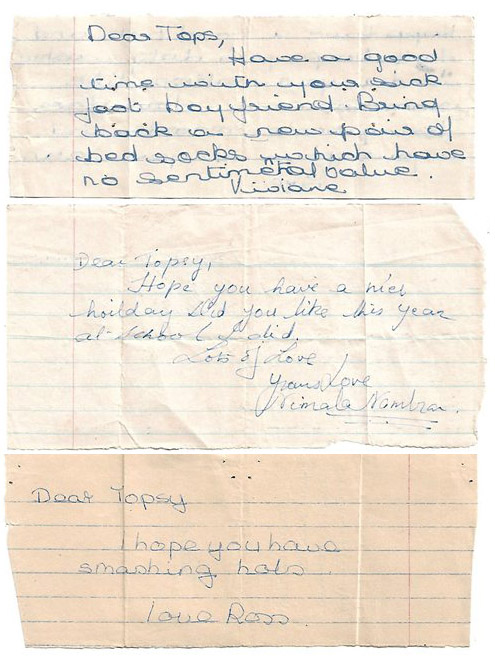 Dear Tops,
Have a good
time with your sick
foot boyfriend. Bring
back a new pair of
bed socks which have
no sentimental value.
Viviane
Dear Topsy,
Hope you have a nice
hoilday did you like this year
at school I did.
Lots of Love
yours Love
Nimala
Dear Topsy
I hope you have
smashing hols
love Ross.